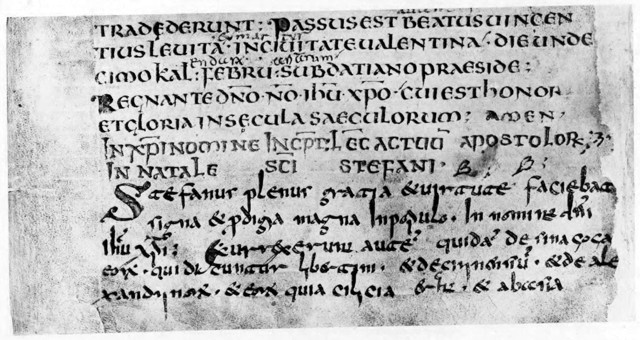 TRADEDERUNT: PASSUS EST BEATUS UINCEN
TIUS LEUITA· IN CIUITATE UALENTINA· DIE UNDE
CIMO KAL· FEBRU· SUB DATIANO PRAESIDE;
REGNANTE DNO· NO· IHU XPO· CUI EST HONOR
ET GLORIA IN SECULA SAECULORUM: AMEN·
IN XPI NOMINE INCPT· LEC ACTUU APOSTOLOR;
IN NATALE SCI STEFANI·
Stefanus plenus gratia & uirtute faciebat
signa & pdigia magna In populo· In nomine dni
ihu xpi: & surrexerunt aute quida de sinagoga
qui dicuntur libertin· & de ale
xandrinor· & eor qui a cilicia